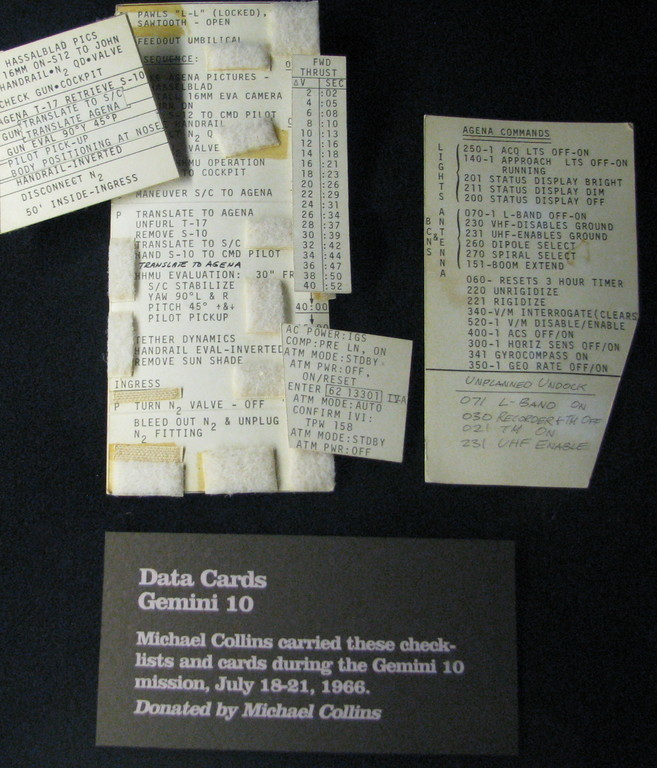 HASSALBLAD PICS
16MM ON-S12 TO JOHN
HANDRAIL•N2 QD•VALVE
CHECK GUN•COCKPIT
AGENA T-17 RETRIEVE S-10
TRANSLATE TO S/C
GUN TRANSLATE AGENA
GUN EVAL 90°Y 45°P
PILOT PICK-UP
BODY POSITIONING AT NOSE
HANDRAIL-INVERTED
DISCONNECT N2
50' INSIDE-INGRESS
PAWLS "L-L" (LOCKED),
SAWTOOTH - OPEN
FEEDOUT UMBILICAL
SEQUENCE:
AGENA PICTURES -
16MM EVA CAMERA
ON
TO CMD PILOT
HANDRAIL
N2
VALVE
HHMU OPERATION
TO COCKPIT
MANEUVER S/C TO AGENA
P TRANSLATE TO AGENA
UNFURL T-17
REMOVE S-10
TRANSLATE TO S/C
HAND S-10 TO CMD PILOT
TRANSLATE TO AGENA
HHMU EVALUATION: 30° FR
S/C STABILIZE
YAW 90°L & R
PITCH 45° ↑&↓
PILOT PICKUP
TETHER DYNAMICS
HANDRAIL EVAL-INVERTED
REMOVE SUN SHADE
INGRESS
P TURN N2 VALVE - OFF
BLEED OUT N2 & UNPLUG
N2 FITTING
FWD
THRUST
ΔV SEC
2 :02
4 :05
6 :08
8 :10
10 :13
12 :16
14 :18
16 :21
18 :23
20 :26
22 :29
24 :31
26 :34
28 :37
30 :39
32 :42
34 :44
36 :47
38 :50
40 :52
40:00
AC POWER:IGS
COMP:PRE LN, ON
ATM MODE:STDBY,
ATM PWR:OFF,
ON/RESET
ENTER 62 13301 IVA
ATM MODE:AUTO
CONFIRM IVI:
TPW 158
ATM MODE:STDBY
ATM PWR:OFF
AGENA COMMANDS
LIGHTS
250-1 ACQ LTS OFF-ON
140-1 APPROACH LTS OFF-ON
RUNNING
201 STATUS DISPLAY BRIGHT
211 STATUS DISPLAY DIM
200 STATUS DISPLAY OFF
BCNS & ANTENNA
070-1 L-BAND OFF-ON
230 VHF-DISABLES GROUND
231 UHF-ENABLES GROUND
260 DIPOLE SELECT
270 SPIRAL SELECT
151-BOOM EXTEND
060- RESETS 3 HOUR TIMER
220 UNRIGIDIZE
221 RIGIDIZE
340-V/M INTERROGATE(CLEARS
520-1 V/M DISABLE/ENABLE
400-1 ACS OFF/ON
300-1 HORIZ SENS OFF/ON
341 GYROCOMPASS ON
350-1 GEO RATE OFF/ON
UNPLANNED UNDOCK
071 L-BAND ON
030 RECORDER+TM OFF
021 TM ON
231 UHF ENABLE
Data Cards
Gemini 10
Michael Collins carried these check-
lists and cards during the Gemini 10
mission, July 18-21, 1966.
Donated by Michael Collins